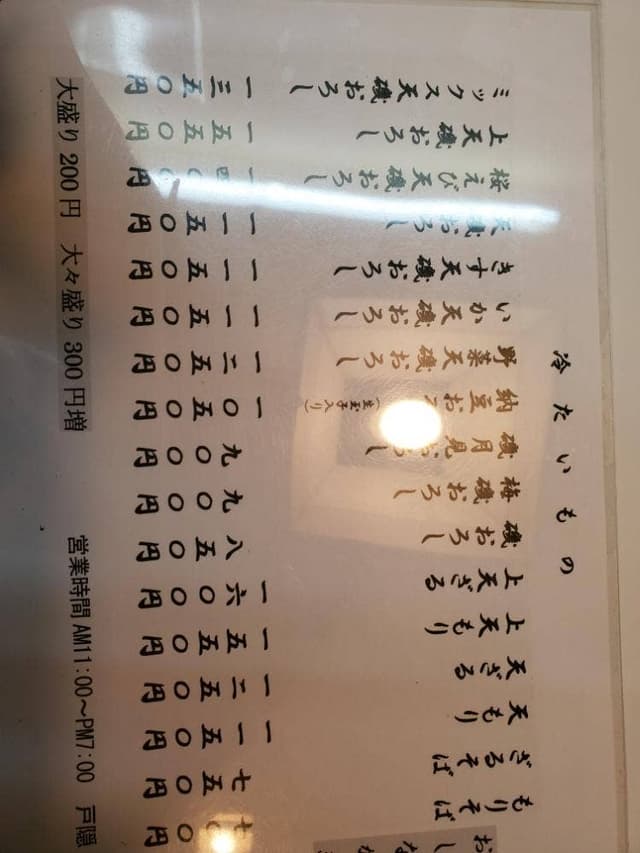 冷たいもの
もりそば 七
ざるそば 七五〇円
天もり 一一五〇円
天ざる 一二五〇円
上天もり 一五五〇円
上天ざる 一六〇〇円
磯おろし 八五〇円
梅磯おろし 九〇〇円
磯月見おろし 九〇〇円
納豆おろし 一〇五〇円
(生玉子入り)
野菜天磯おろし 一二五〇円
いか天磯おろし 一一五〇円
きす天磯おろし 一一五〇円
天磯おろし 一一五〇円
桜えび天磯おろし 円
上天磯おろし 一五五〇円
ミックス天磯おろし 一三五〇円
大盛り200円 大々盛り300円増 営業時間AM11:00～PM7:00 戸隠